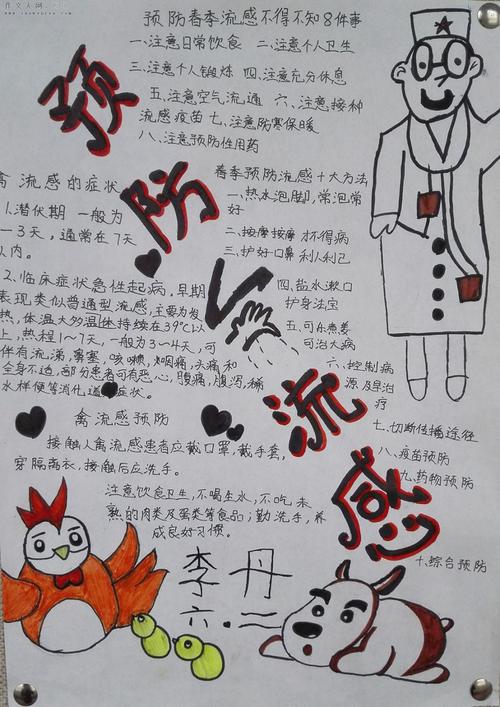 作文人网
预防春季流感不得不知8件事
一、注意日常饮食 二、注意个人卫生
三、注意个人锻炼 四、注意充分休息
五、注意空气流通 六、注意接种
流感疫苗 七、注意防寒保暖
八、注意预防性用药
预防流感
禽流感的症状
1.潜伏期 一般为
1—3天,通常在7天
以内。
2、临床症状急性起病,早期
表现类似普通型流感,主要为发
热,体温大多温体持续在39℃以
上,热程1~7天,一般为3~4天,可
伴有流涕,鼻塞,咳嗽,咽痛,头痛和
全身不适,部分患者可有恶心,腹痛,腹泻,稀
水样便等消化道症状。
春季预防流感十大方法
一、热水泡脚,常泡常
好
二、按摩按摩 才不得病
三、护好口鼻 利人利己
四、盐水漱口
护身法宝
五、可乐煮姜
可治大病
六、控制病
源及早治
疗
七、切断传播途径
八、疫苗预防
九、药物预防
十、综合预防
禽流感预防
接触人禽流感患者应戴口罩,戴手套,
穿隔离衣,接触后应洗手。
注意饮食卫生,不喝生水,不吃未
熟的肉类及蛋类等食品;勤洗手,养
成良好习惯。
李丹
六.二